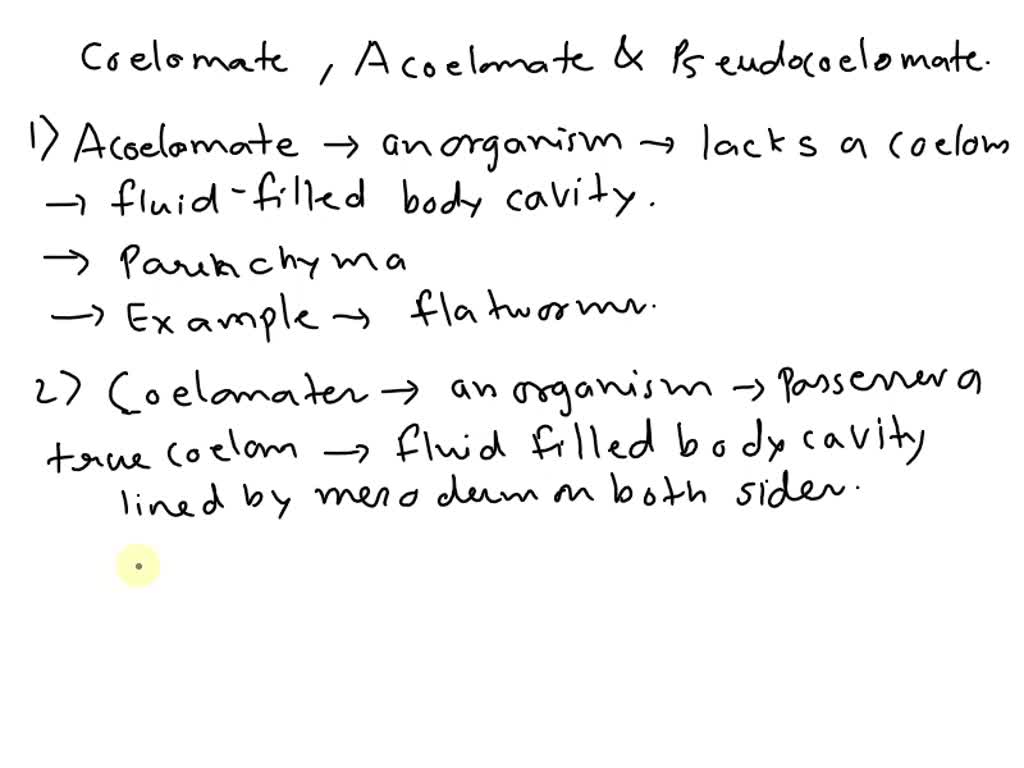 Coelomate , Acoelomate & Pseudocoelomate.
1) Acoelomate → an organism → lacks a coelom
→ fluid-filled body cavity.
→ Parenchyma
→ Example → flatworms.
2) Coelomates → an organism → Possesses a
true coelom → fluid filled body cavity
lined by mesoderm on both sides.